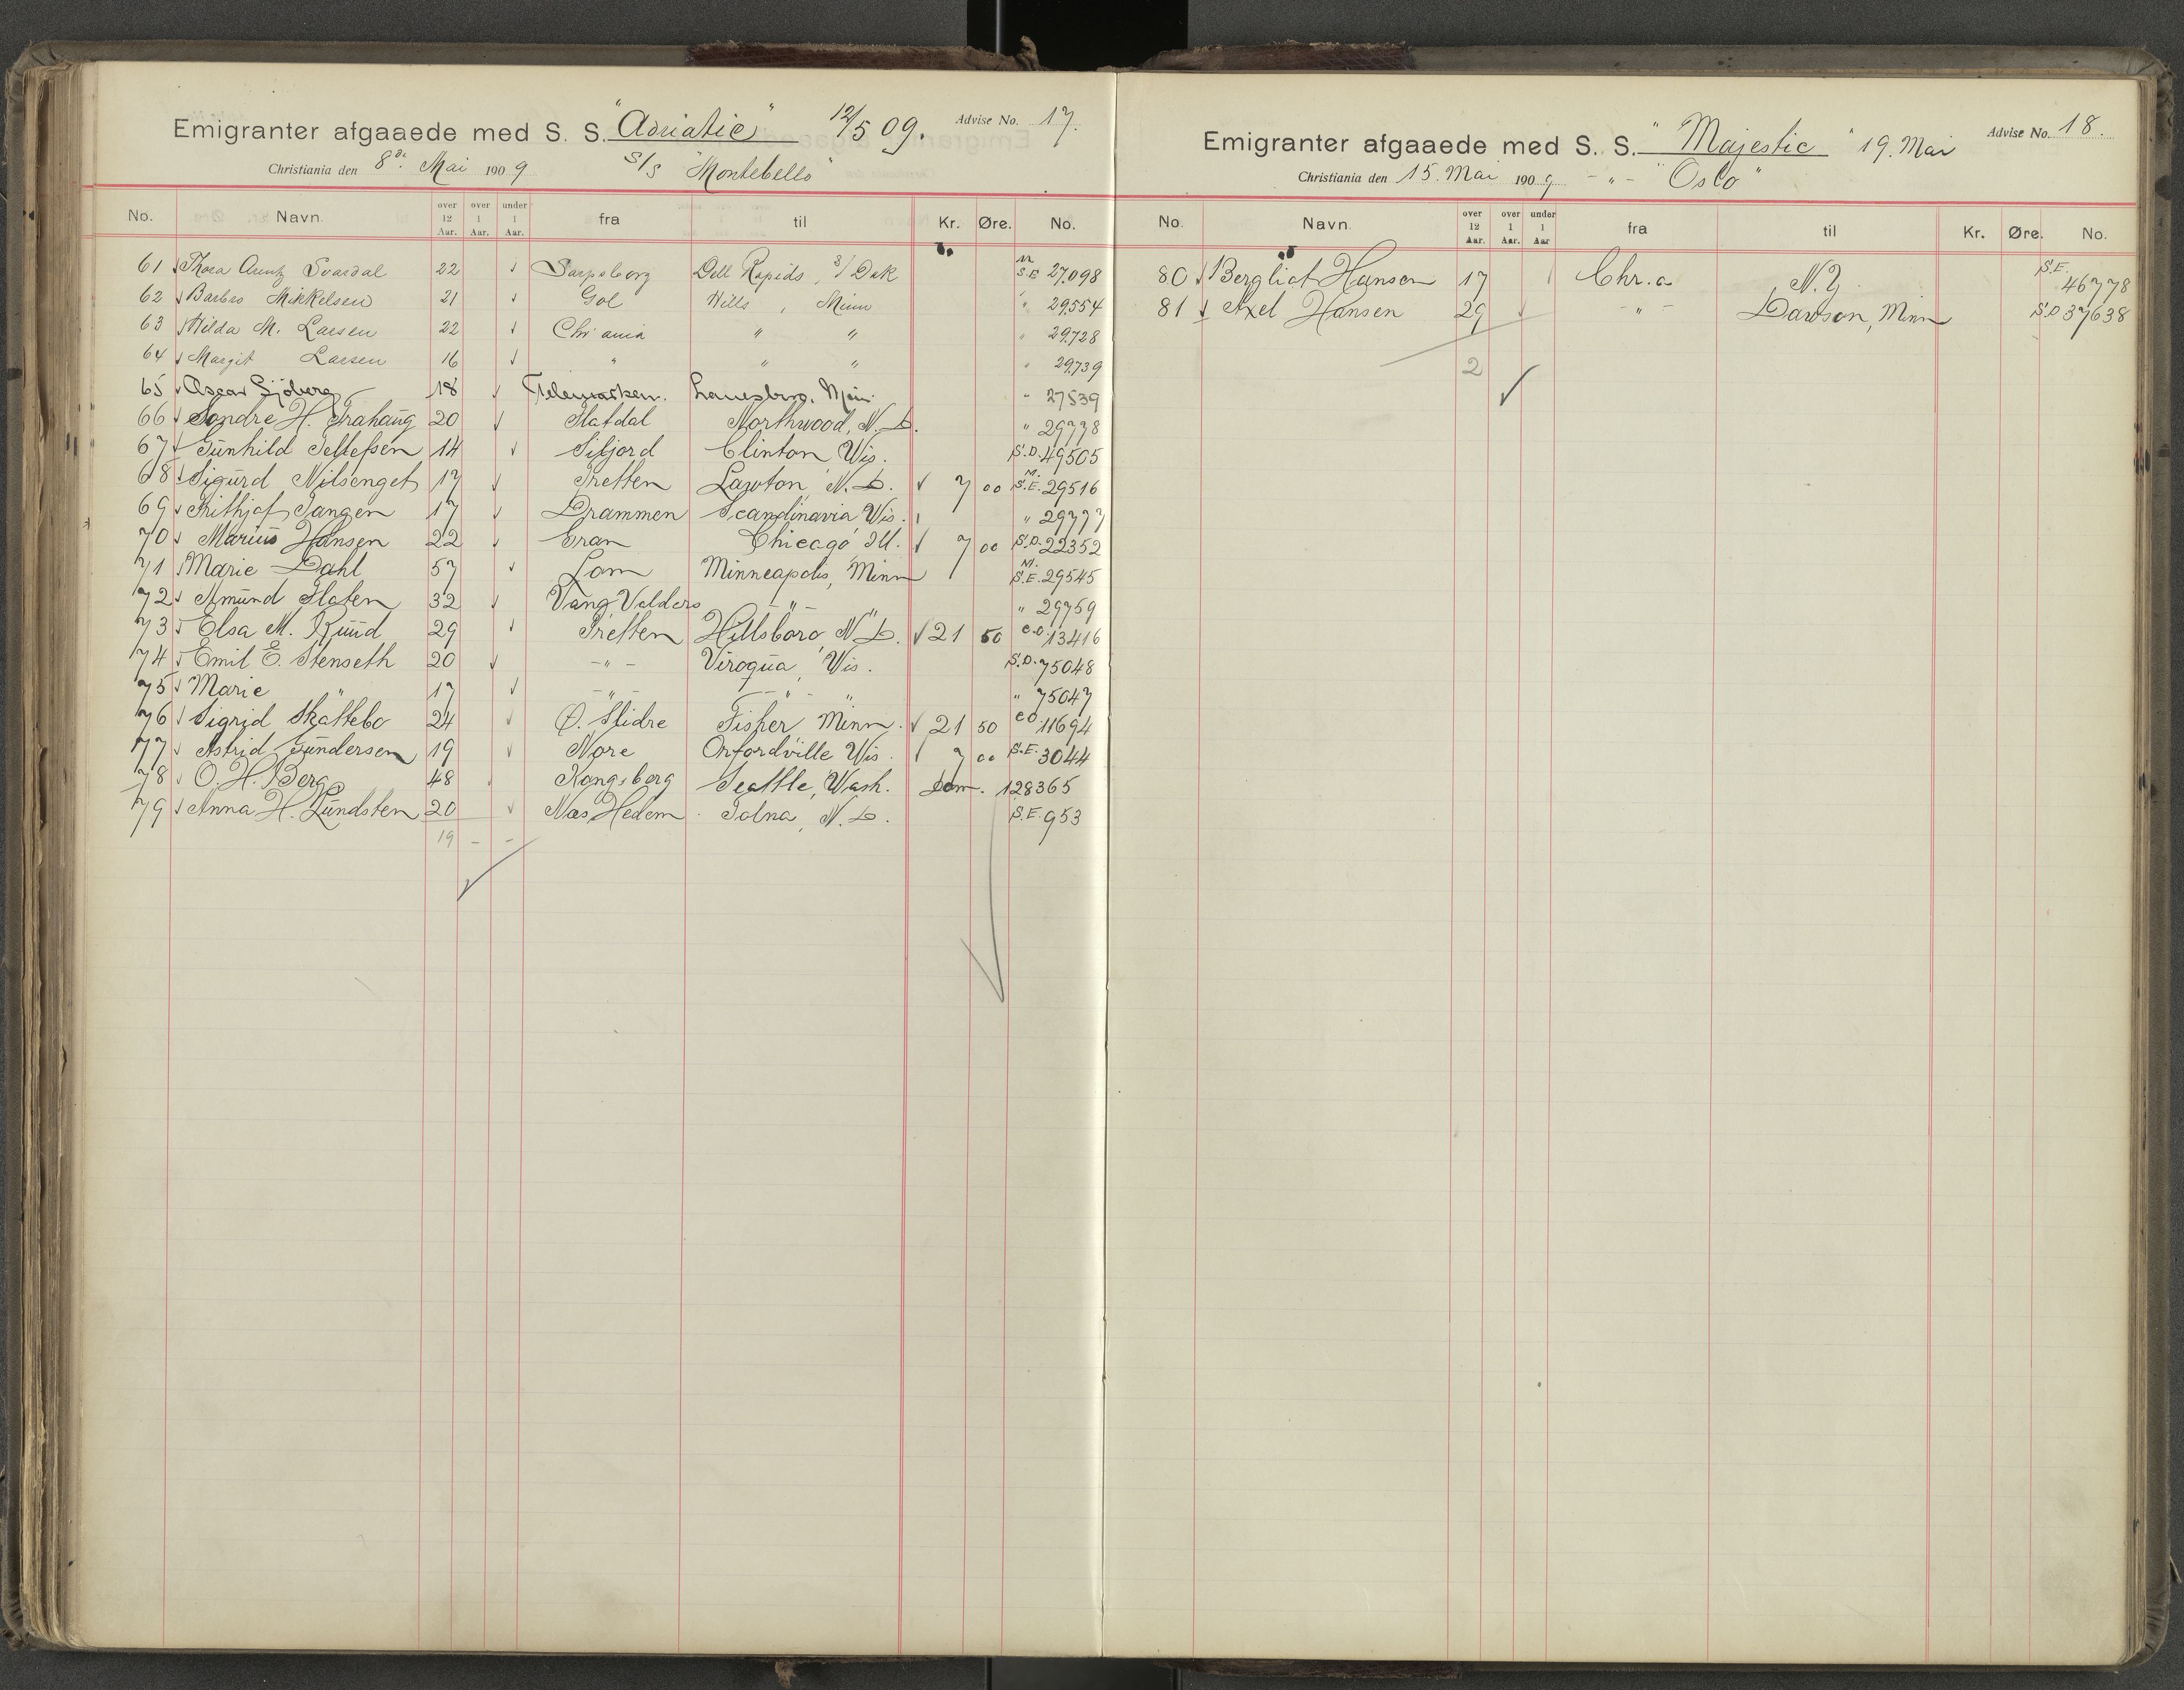 Emigranter afgaaede med S. S. "Adriatic" 12/5 09. Advise No. 17.
Christiania den 8de Mai 1909 S/S "Montebello"
No. Navn. over 12 Aar. over 1 Aar. under 1 Aar. fra til Kr. Øre. No.
61 Thora Arentz Svardal 22 Sarpsborg Dell Rapids, S/ Dak M S.E 27,098
62 Barbro Mikkelsen 21 Gol Hills, Minn " 29,554
63 Hilda M. Larsen 22 Chr.ania " " " 29,728
64 Margit Larsen 16 " " " " 29,739
65 Oscar Sjöberg 18 Telemarken. Lanesbro. Minn. " 27539
66 Sondre H. Trahaug 20 Flatdal Northwood, N. D. " 29778
67 Gunhild Tellefsen 14 Siljord Clinton Wis. S.O. 49505
68 Sigurd Nilsenget 17 Tretten Lawton, N. D. 7 00 M. S.E. 29516
69 Frithjof Tangen 17 Drammen Scandinavia, Wis. " 29777
70 Marius Hansen 22 Gran Chicago Ill. 7 00 S.O. 22352
71 Marie Dahl 57 Lom Minneapolis, Minn M. S.E. 29545
72 Amund Sløten 32 Vang Valders - " - " 29759
73 Elsa M. Ruud 29 Tretten Hillsboro, N. D. 21 50 C.O. 13416
74 Emil E. Stenseth 20 - " - Viroqua, Wis. S.O. 75048
75 Marie " 17 - " - - " - " " 75047
76 Sigrid Skattebo 24 Ø. Slidre Fisher Minn. 21 50 C.O. 11694
77 Astrid Gundersen 19 Nore Orfordville Wis. 7 00 S.E. 3044
78 O. H. Berg 48 Kongsberg Seattle, Wash. Dom. 128365
79 Anna H. Lundsten 20 Næs Hedem. Tolna, N. D. S.E. 953
19 - -
Emigranter afgaaede med S. S. "Majestic" 19. Mai Advise No. 18.
Christiania den 15. Mai 1909 - " - "Oslo"
No. Navn. over 12 Aar. over 1 Aar. under 1 Aar fra til Kr. Øre. No.
80 Bergliot Hansen 17 Chr.a N.Y. S.E. 46778
81 Axel Hansen 29 - " - Dawson, Minn S.O 37638
2